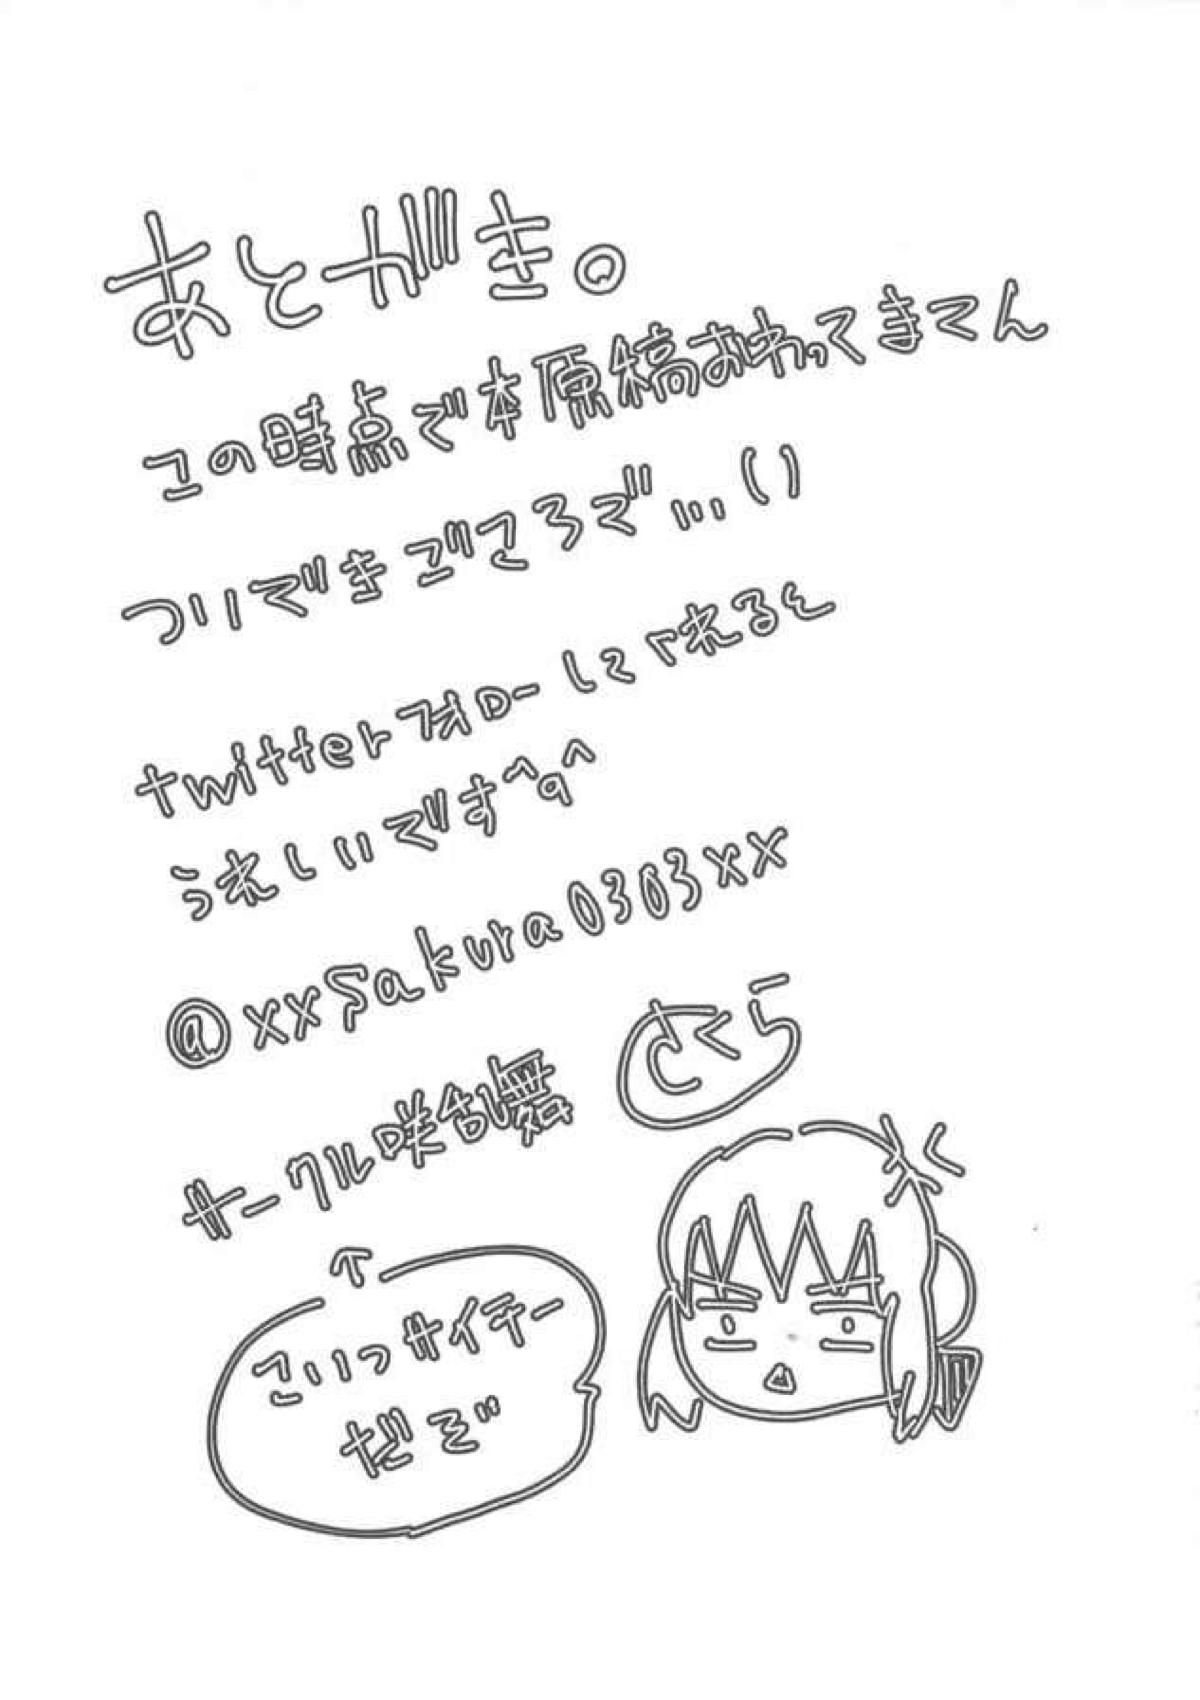 あとがき。
この時点で本原稿おわってませてん
ついできごころで…()
twitterフォローしてくれると
うれしいです^q^
@xxSakura0303xx
さくらー
サークル咲乱舞
↑
こいつサイテー
だぞ